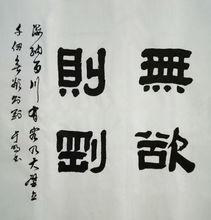 無欲
則剛
海納百川有容乃大壁立
千仞無欲則剛